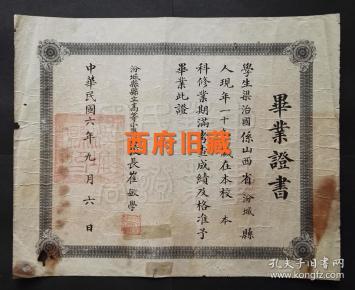 畢業證書
學生梁治國係山西省汾城縣
人現年一十 歲在本校 本
科修業期滿 成績及格准予
畢業此證
汾城縣縣立高等小 校長崔敏學
中華民國六年九月六日
西府旧藏
孔夫子旧书网